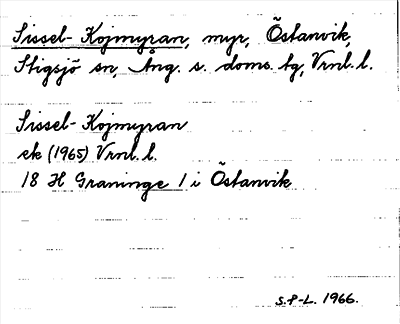 Sissel-Kojmyran, myr, Östanvik,
Stigsjö sn, Ång. s. doms. tg, Vrnl. l.
Sissel-Kojmyran
ek (1965) Vrnl. l.
18 H Graninge 1 i Östanvik
S.P-L. 1966.